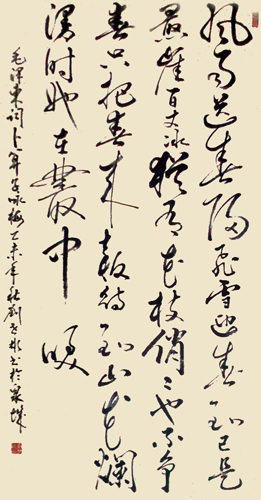 风雨送春归飛雪迎春到已是
悬崖百丈冰犹有花枝俏々也不争
春只把春来报待到山花爛
漫时她在叢中咲
毛泽东词卜算子咏梅乙未年秋劉书于泉城